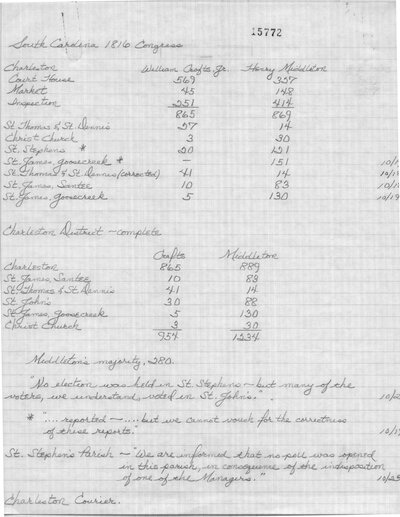 15772
South Carolina 1816 Congress
Charleston William Crafts, Jr. Henry Middleton
Court House 569 357
Market 45 148
Inspection 251 414
865 869
St. Thomas & St. Dennis 27 14
Christ Church 3 30
St. Stephens * 20 121
St. James, Goosecreek * — 151 10/1
St. Thomas & St. Dennis (corrected) 41 14 10/1
St. James, Santee 10 83 10/1
St. James, Goosecreek 5 130 10/19
Charleston District — complete
Crafts Middleton
Charleston 865 889
St. James, Santee 10 83
St. Thomas & St. Dennis 41 14
St. John's 30 88
St. James, Goosecreek 5 130
Christ Church 3 30
954 1234
Middleton's majority, 280.
"No election was held in St. Stephens — but many of the
voters, we understand, voted in St. John's." 10/2
* ".... reported — .... but we cannot vouch for the correctness
of these reports." 10/1
St. Stephen's Parish — "We are informed that no poll was opened
in this parish, in consequence of the indisposition
of one of the Managers." 10/25
Charleston Courier.